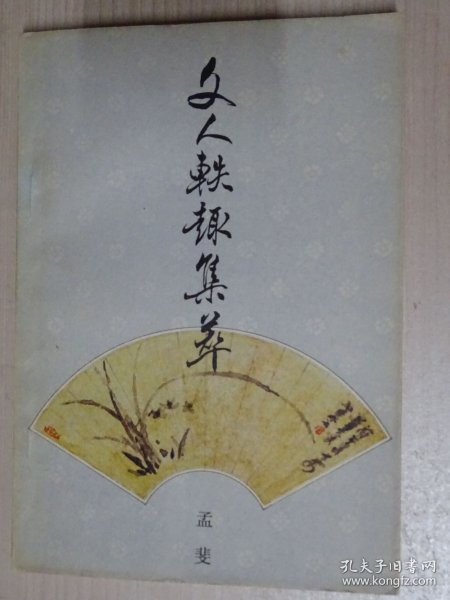 文人轶趣集萃
孟斐
孔夫子旧书网
www.kongfz.com